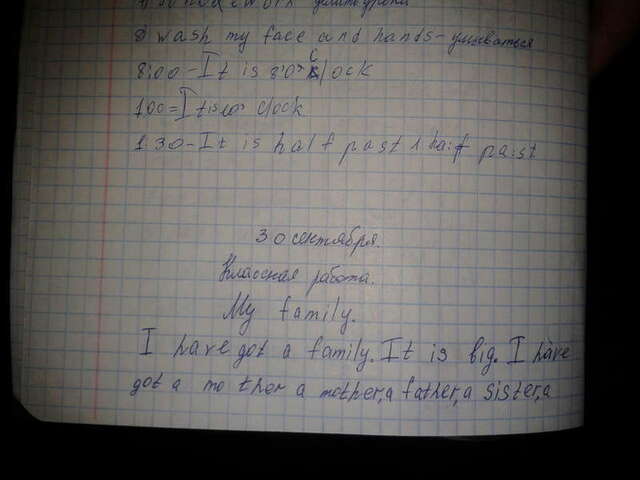 homework делать уроки
8) wash my face and hands - умываться
8:00 - It is 8:0° clock
1:00 = It is clock
1:30 - It is half past 1 haif pa:st
30 сентября.
Классная работа.
My family.
I have got a family. It is big. I have
got a mo ther a mother, a father, a sister, a